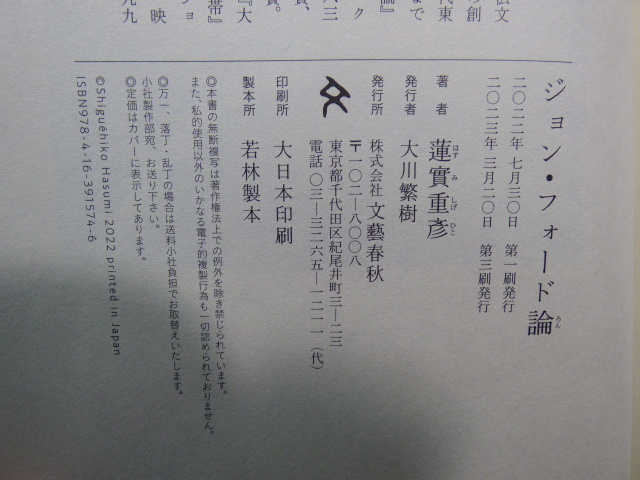 ジョン・フォード論
ろん
二〇二二年 七月三〇日 第一刷発行
二〇二三年 三月二〇日 第三刷発行
著者 蓮實重彥
はす み しげ ひこ
発行者 大川繁樹
発行所 株式会社 文藝春秋
〒一〇二―八〇〇八
東京都千代田区紀尾井町三―二三
電話 〇三―三二六五―一二一一（代）
印刷所 大日本印刷
製本所 若林製本
◎本書の無断複写は著作権法上での例外を除き禁じられています。
また、私的使用以外のいかなる電子的複製行為も一切認められておりません。
◎万一、落丁・乱丁の場合は送料小社負担でお取替えいたします。
小社製作部宛、お送り下さい。
◎定価はカバーに表示してあります。
©Shiguéhiko Hasumi 2022 printed in Japan
ISBN978-4-16-391574-6